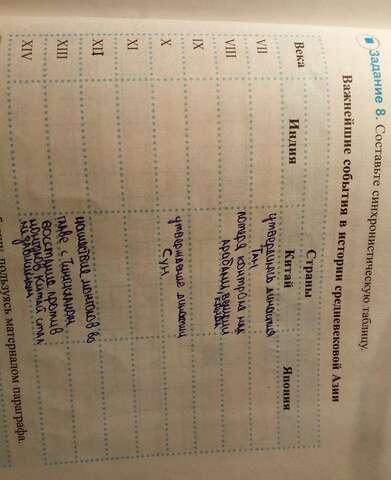 Задание 8. Составьте синхронистическую таблицу.
Важнейшие события в истории средневековой Азии
Века
Страны
Индия
Китай
Япония
VII
утвердилась династия
Тан
VIII
потеря контроля над
IX
X
утверждение династии
Сун
XI
XII
нашествие монголов во
главе с Чингисханом
XIII
восстание против
монголов Китай стал
XIV
пользуясь материалом параграфа.